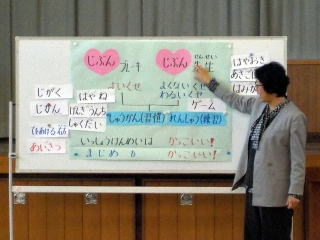 じぶん ブレーキ
じぶん 先生
せんせい
よいくせ
よくないくせ
わるいくせ
はやおき
あさごは
はみが
じがく
じかん
はやね
げんきうんち
しゅくだい
あいさつ
ゲーム
しゅうかん(習慣)
れんしゅう(練習)
いっしょうけんめいは かっこいい!
まじめも かっこいい!